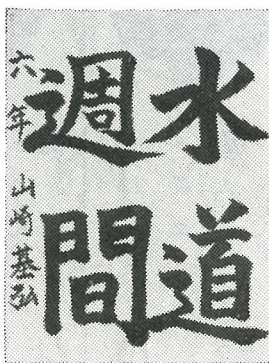 水道
週間
六年 山崎基弘